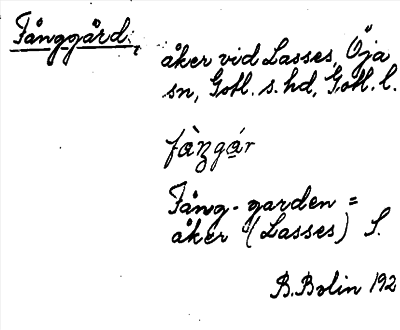 Fånggård,
åker vid Lasses, Öja
sn, Gotl. s. hd, Gotl. l.
Fång-garden =
åker (Lasses) S.
B. Bolin 192